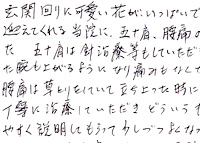 玄関回りに可愛い花がいっぱいで
迎えてくれる当院に、五十肩、腰痛の
た 五十肩は針治療等もしていただ
た腕も上がるようになり痛みもなくて
腰痛は草とりをしていて立ち上った時に
丁寧に治療していただき どういう
やすく説明してもらって少しづつよくなっ